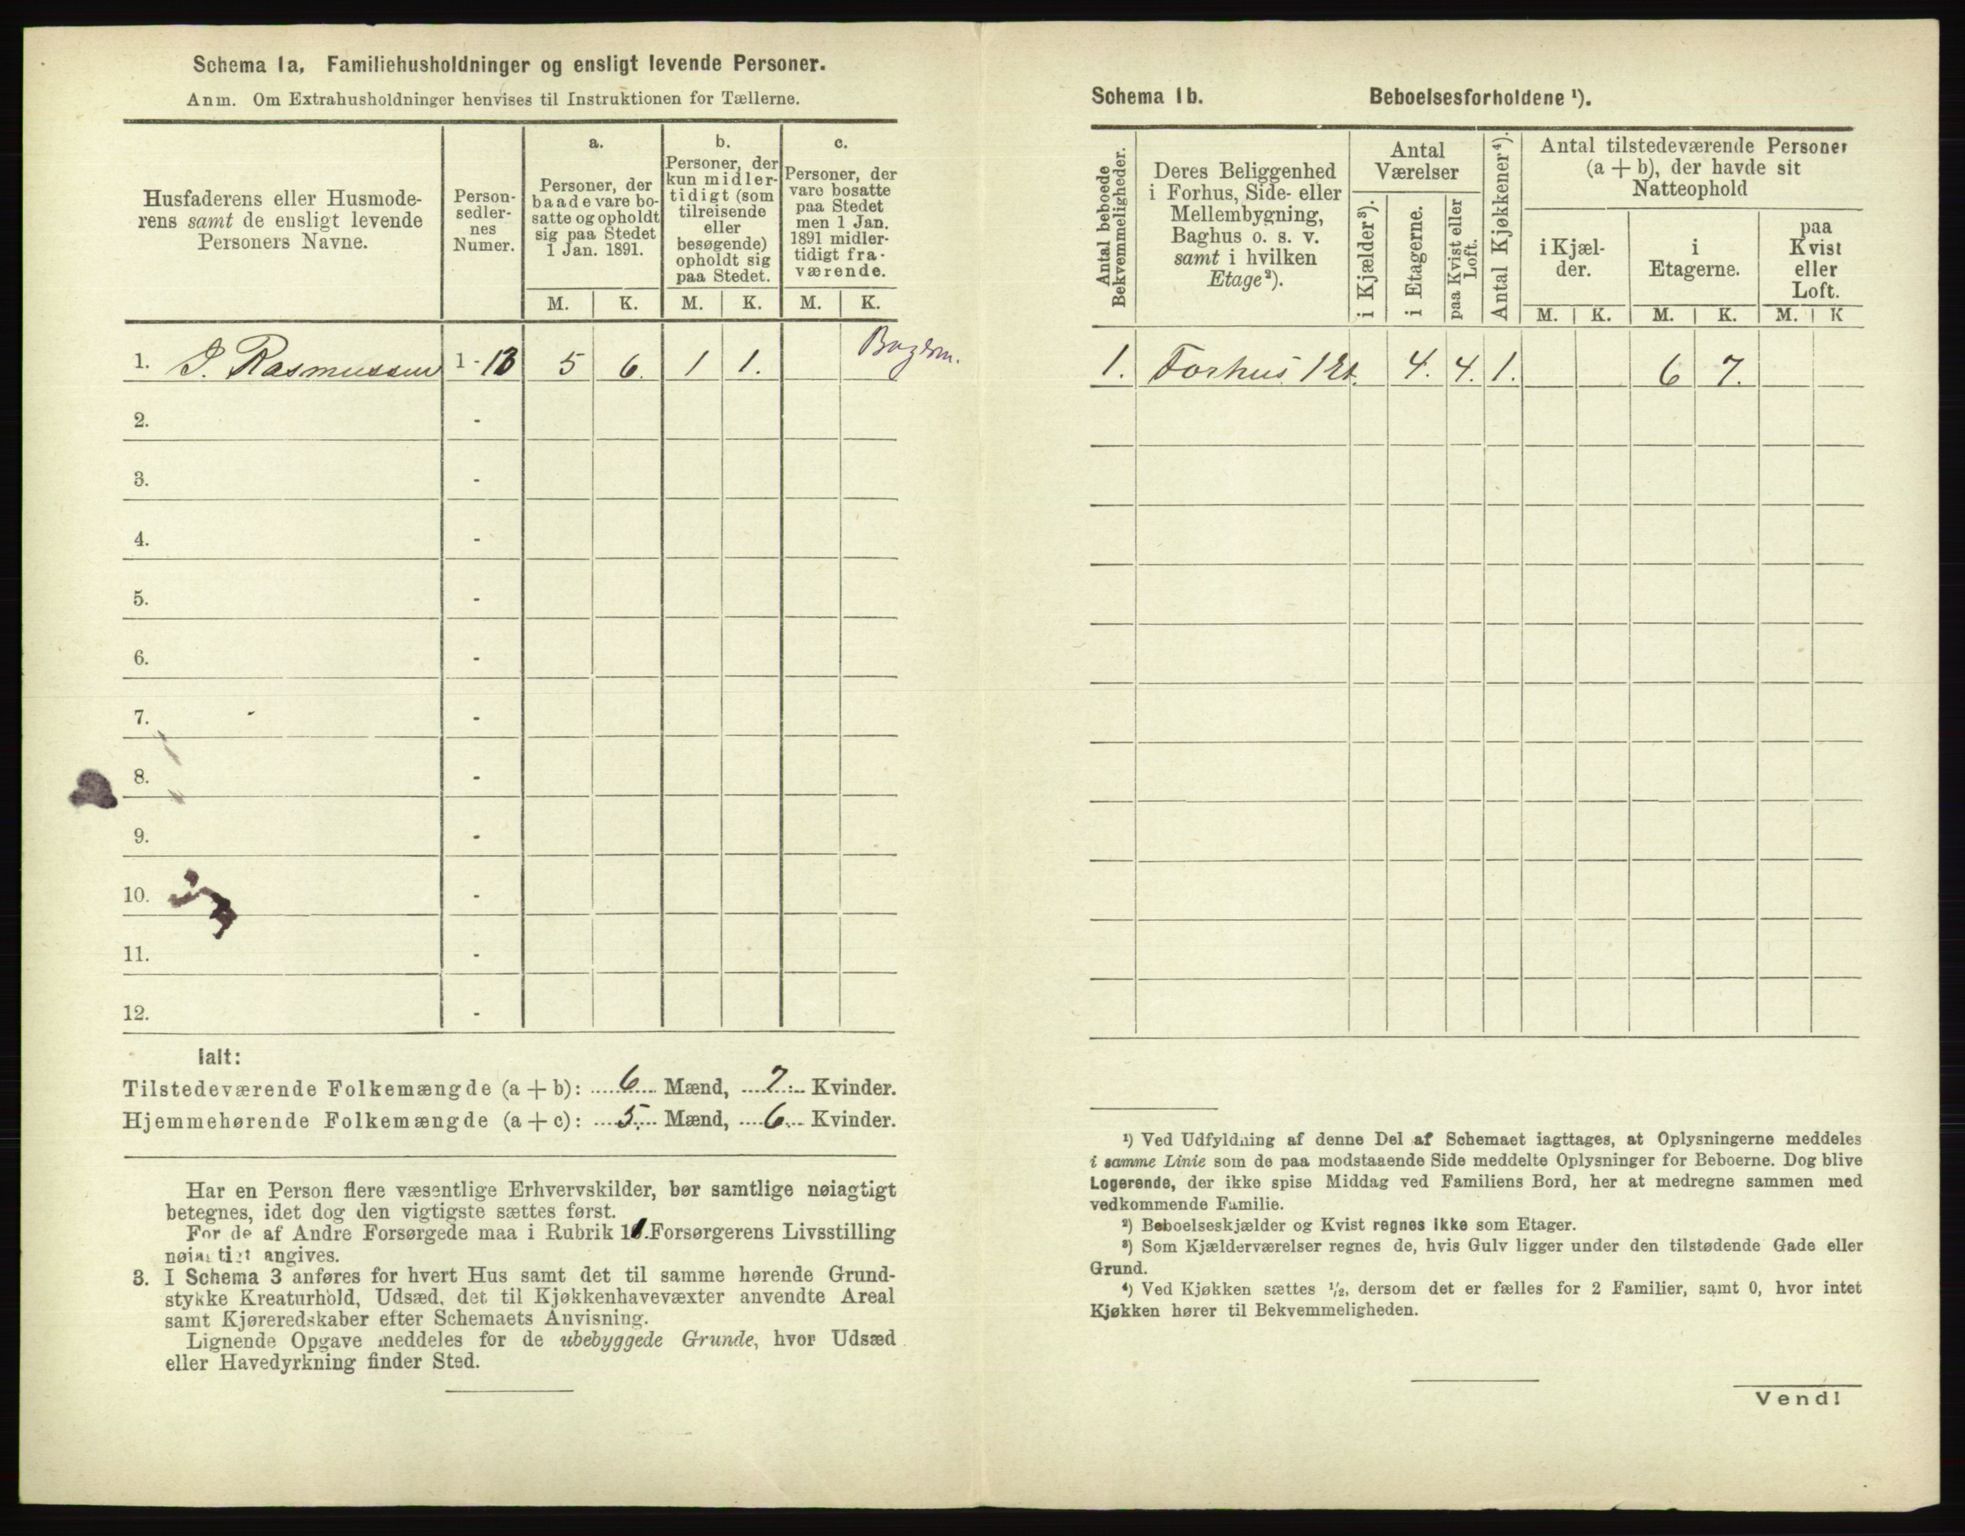 Schema 1a. Familiehusholdninger og ensligt levende Personer.
Anm. Om Extrahusholdninger henvises til Instruktionen for Tællerne.
Husfaderens eller Husmode-
rens samt de ensligt levende
Personers Navne.
Person-
sedler-
nes
Numer.
a.
Personer, der
baade vare bo-
satte og opholdt
sig paa Stedet
1 Jan. 1891.
b.
Personer, der
kun midler-
tidigt (som
tilreisende
eller
besøgende)
opholdt sig
paa Stedet.
c.
Personer, der
vare bosatte
paa Stedet
men 1 Jan.
1891 midler-
tidigt fra-
værende.
M. K. M. K. M. K.
1. J. Rasmussen 1 - 13 5 6. 1 1.
2. -
3. -
4. -
5. -
6. -
7. -
8. -
9. -
10. -
11. -
12. -
Ialt:
Tilstedeværende Folkemængde (a + b): 6 Mænd, 7 Kvinder.
Hjemmehørende Folkemængde (a + c): 5. Mænd, 6 Kvinder.
Har en Person flere væsentlige Erhvervskilder, bør samtlige nøiagtigt
betegnes, idet dog den vigtigste sættes først.
For de af Andre Forsørgede maa i Rubrik 11. Forsørgerens Livsstilling
nøiagtigt angives.
3. I Schema 3 anføres for hvert Hus samt det til samme hørende Grund-
stykke Kreaturhold, Udsæd, det til Kjøkkenhavevæxter anvendte Areal
samt Kjøreredskaber efter Schemaets Anvisning.
Lignende Opgave meddeles for de ubebyggede Grunde, hvor Udsæd
eller Havedyrkning finder Sted.
Schema 1b. Beboelsesforholdene ¹).
Antal beboede
Bekvemmeligheder.
Deres Beliggenhed
i Forhus, Side- eller
Mellembygning,
Baghus o. s. v.
samt i hvilken
Etage²).
Antal
Værelser
i Kjælder³).
i Etagerne.
paa Kvist eller
Loft.
Antal Kjøkkener⁴).
Antal tilstedeværende Personer
(a + b), der havde sit
Natteophold
i Kjæl-
der.
i
Etagerne.
paa
Kvist
eller
Loft.
M. K. M. K. M. K
1. Forhus 1 Et. 4. 4. 1. 6 7.
¹) Ved Udfyldning af denne Del af Schemaet iagttages, at Oplysningerne meddeles
i samme Linie som de paa modstaaende Side meddelte Oplysninger for Beboerne. Dog blive
Logerende, der ikke spise Middag ved Familiens Bord, her at medregne sammen med
vedkommende Familie.
²) Beboelseskjælder og Kvist regnes ikke som Etager.
³) Som Kjælderværelser regnes de, hvis Gulv ligger under den tilstødende Gade eller
Grund.
⁴) Ved Kjøkken sættes ½, dersom det er fælles for 2 Familier, samt 0, hvor intet
Kjøkken hører til Bekvemmeligheden.
Vend!